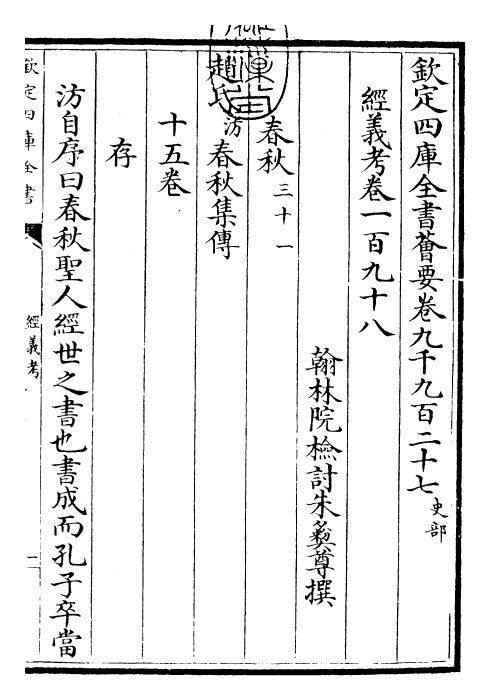 欽定四庫全書薈要卷九千九百二十七 史部
經義考卷一百九十八
翰林院檢討朱彝尊撰
春秋 三十一
趙氏 汸 春秋集傳
十五卷
存
汸自序曰春秋聖人經世之書也書成而孔子卒當
欽定四庫全書
經義考
一